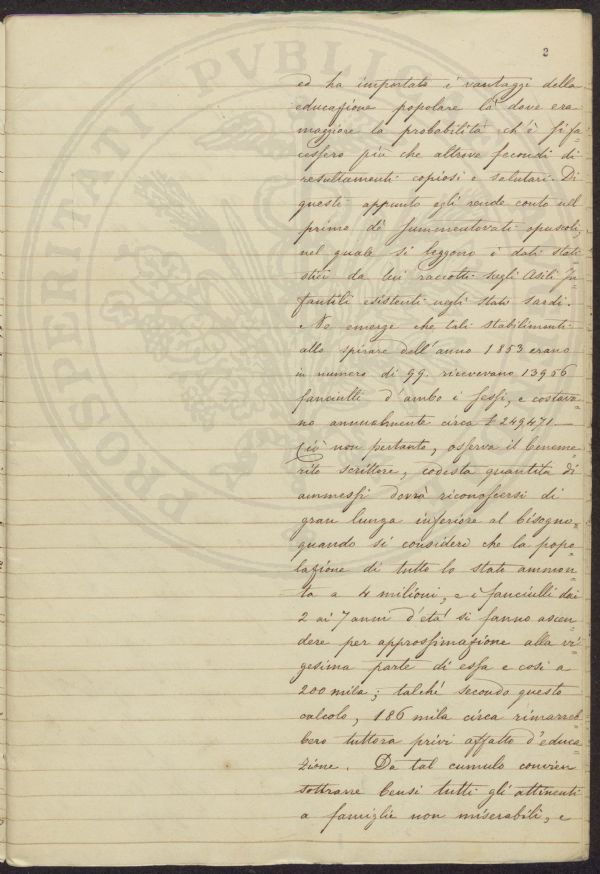 2
PROSPERITATI PVBLICAE
ed ha importato i vantaggi della
educazione popolare là dove era
maggiore la probabilità ch'è si fa=
cessero più che altrove fecondi di
resultamenti copiosi e salutari. Di
questi appunto egli rende conto nel
primo de' summentovati opuscoli,
nel quale si leggono i dati stati
stici da lui raccolti sugli Asili In=
fantili esistenti negli stati sardi.
Ne emerge che tali stabilimenti
allo spirare dell'anno 1853 erano
in numero di 99. ricevevano 13956
fanciulli d'ambo i sessi, e costava=
no annualmente circa £ 249471.—
Ciò non pertanto, osserva il beneme=
rito scrittore, codesta quantità di
ammessi dovrà riconoscersi di
gran lunga inferiore al bisogno,
quando si consideri che la popo=
lazione di tutto lo stato ammon=
ta a 4 milioni, e i fanciulli dai
2 ai 7 anni d'età si fanno ascen=
dere per approssimazione alla vi=
gesima parte di essa e così a
200 mila; talché secondo questo
calcolo, 186 mila circa rimarreb
bero tuttora privi affatto d'educa=
zione. Da tal cumulo convien
sottrarre bensì tutti gli attinenti
a famiglie non miserabili, e